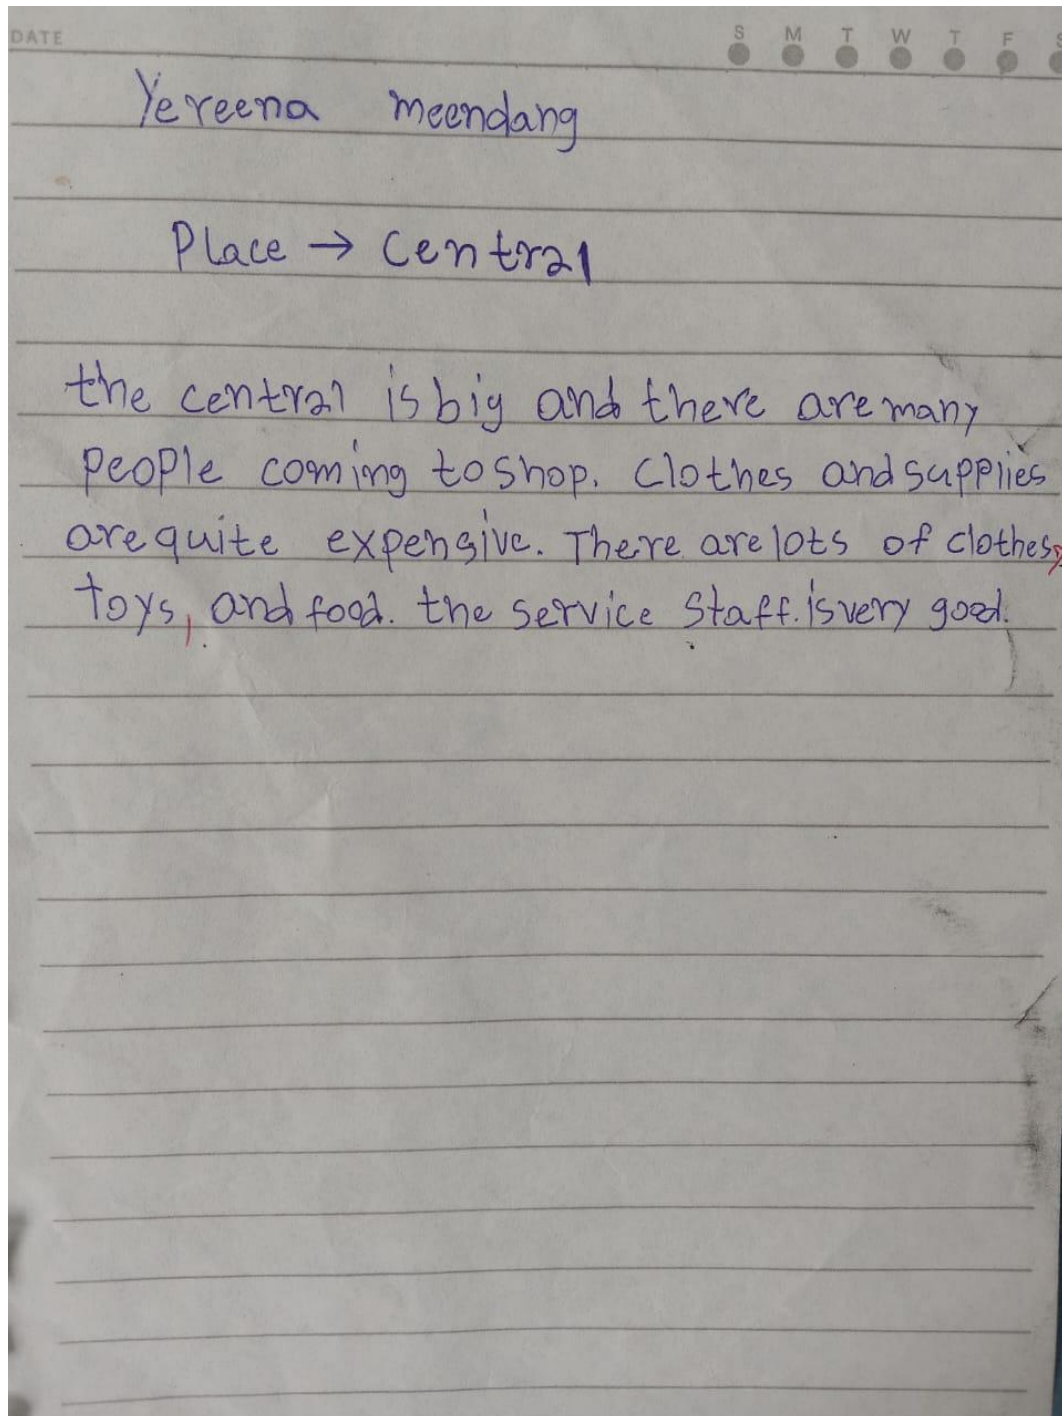 DATE S M T W T F S
Yereena meendang
Place → Central
the central is big and there are many
people coming to shop. Clothes and supplies
are quite expensive. There are lots of clothes,
toys, and food. the service staff. is very good.